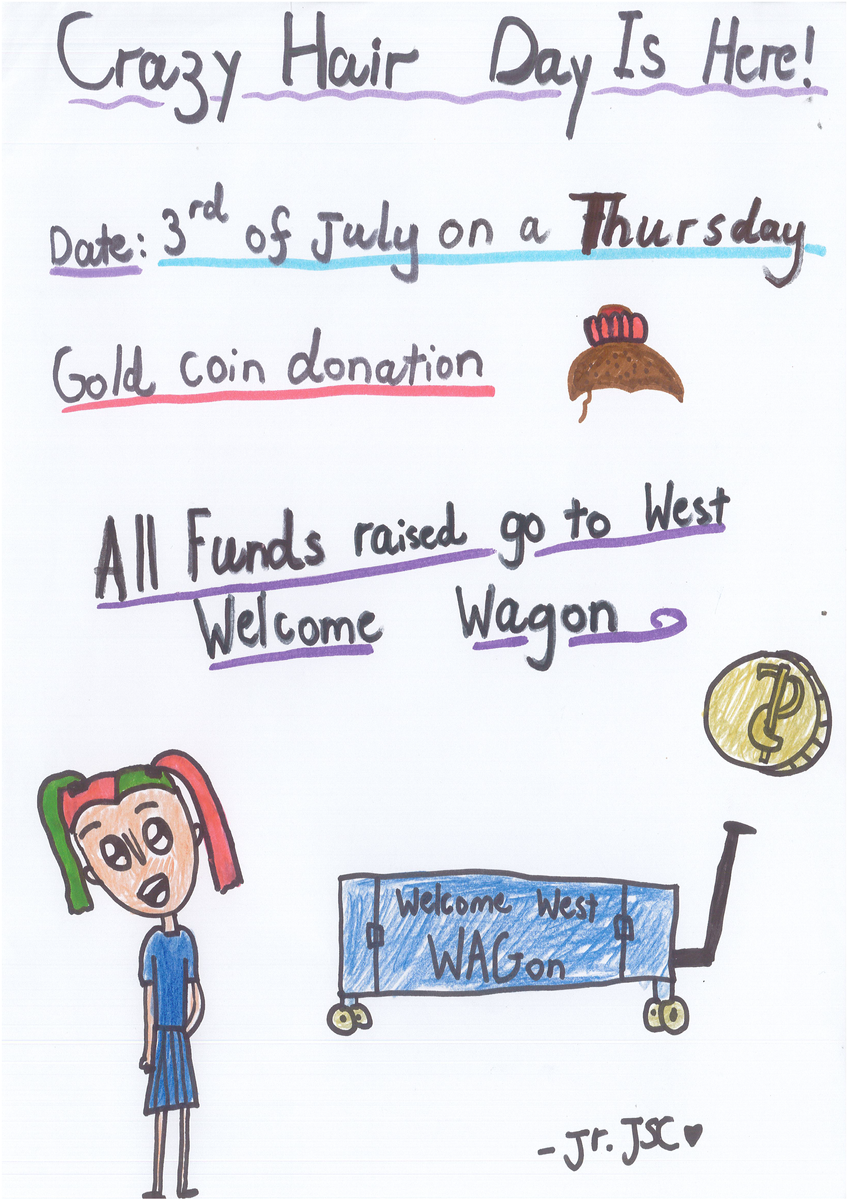 Crazy Hair Day Is Here!
Date: 3rd of July on a Thursday
Gold coin donation
All Funds raised go to West
Welcome Wagon
Welcome West
WAGon
- Jr. JSC ♥